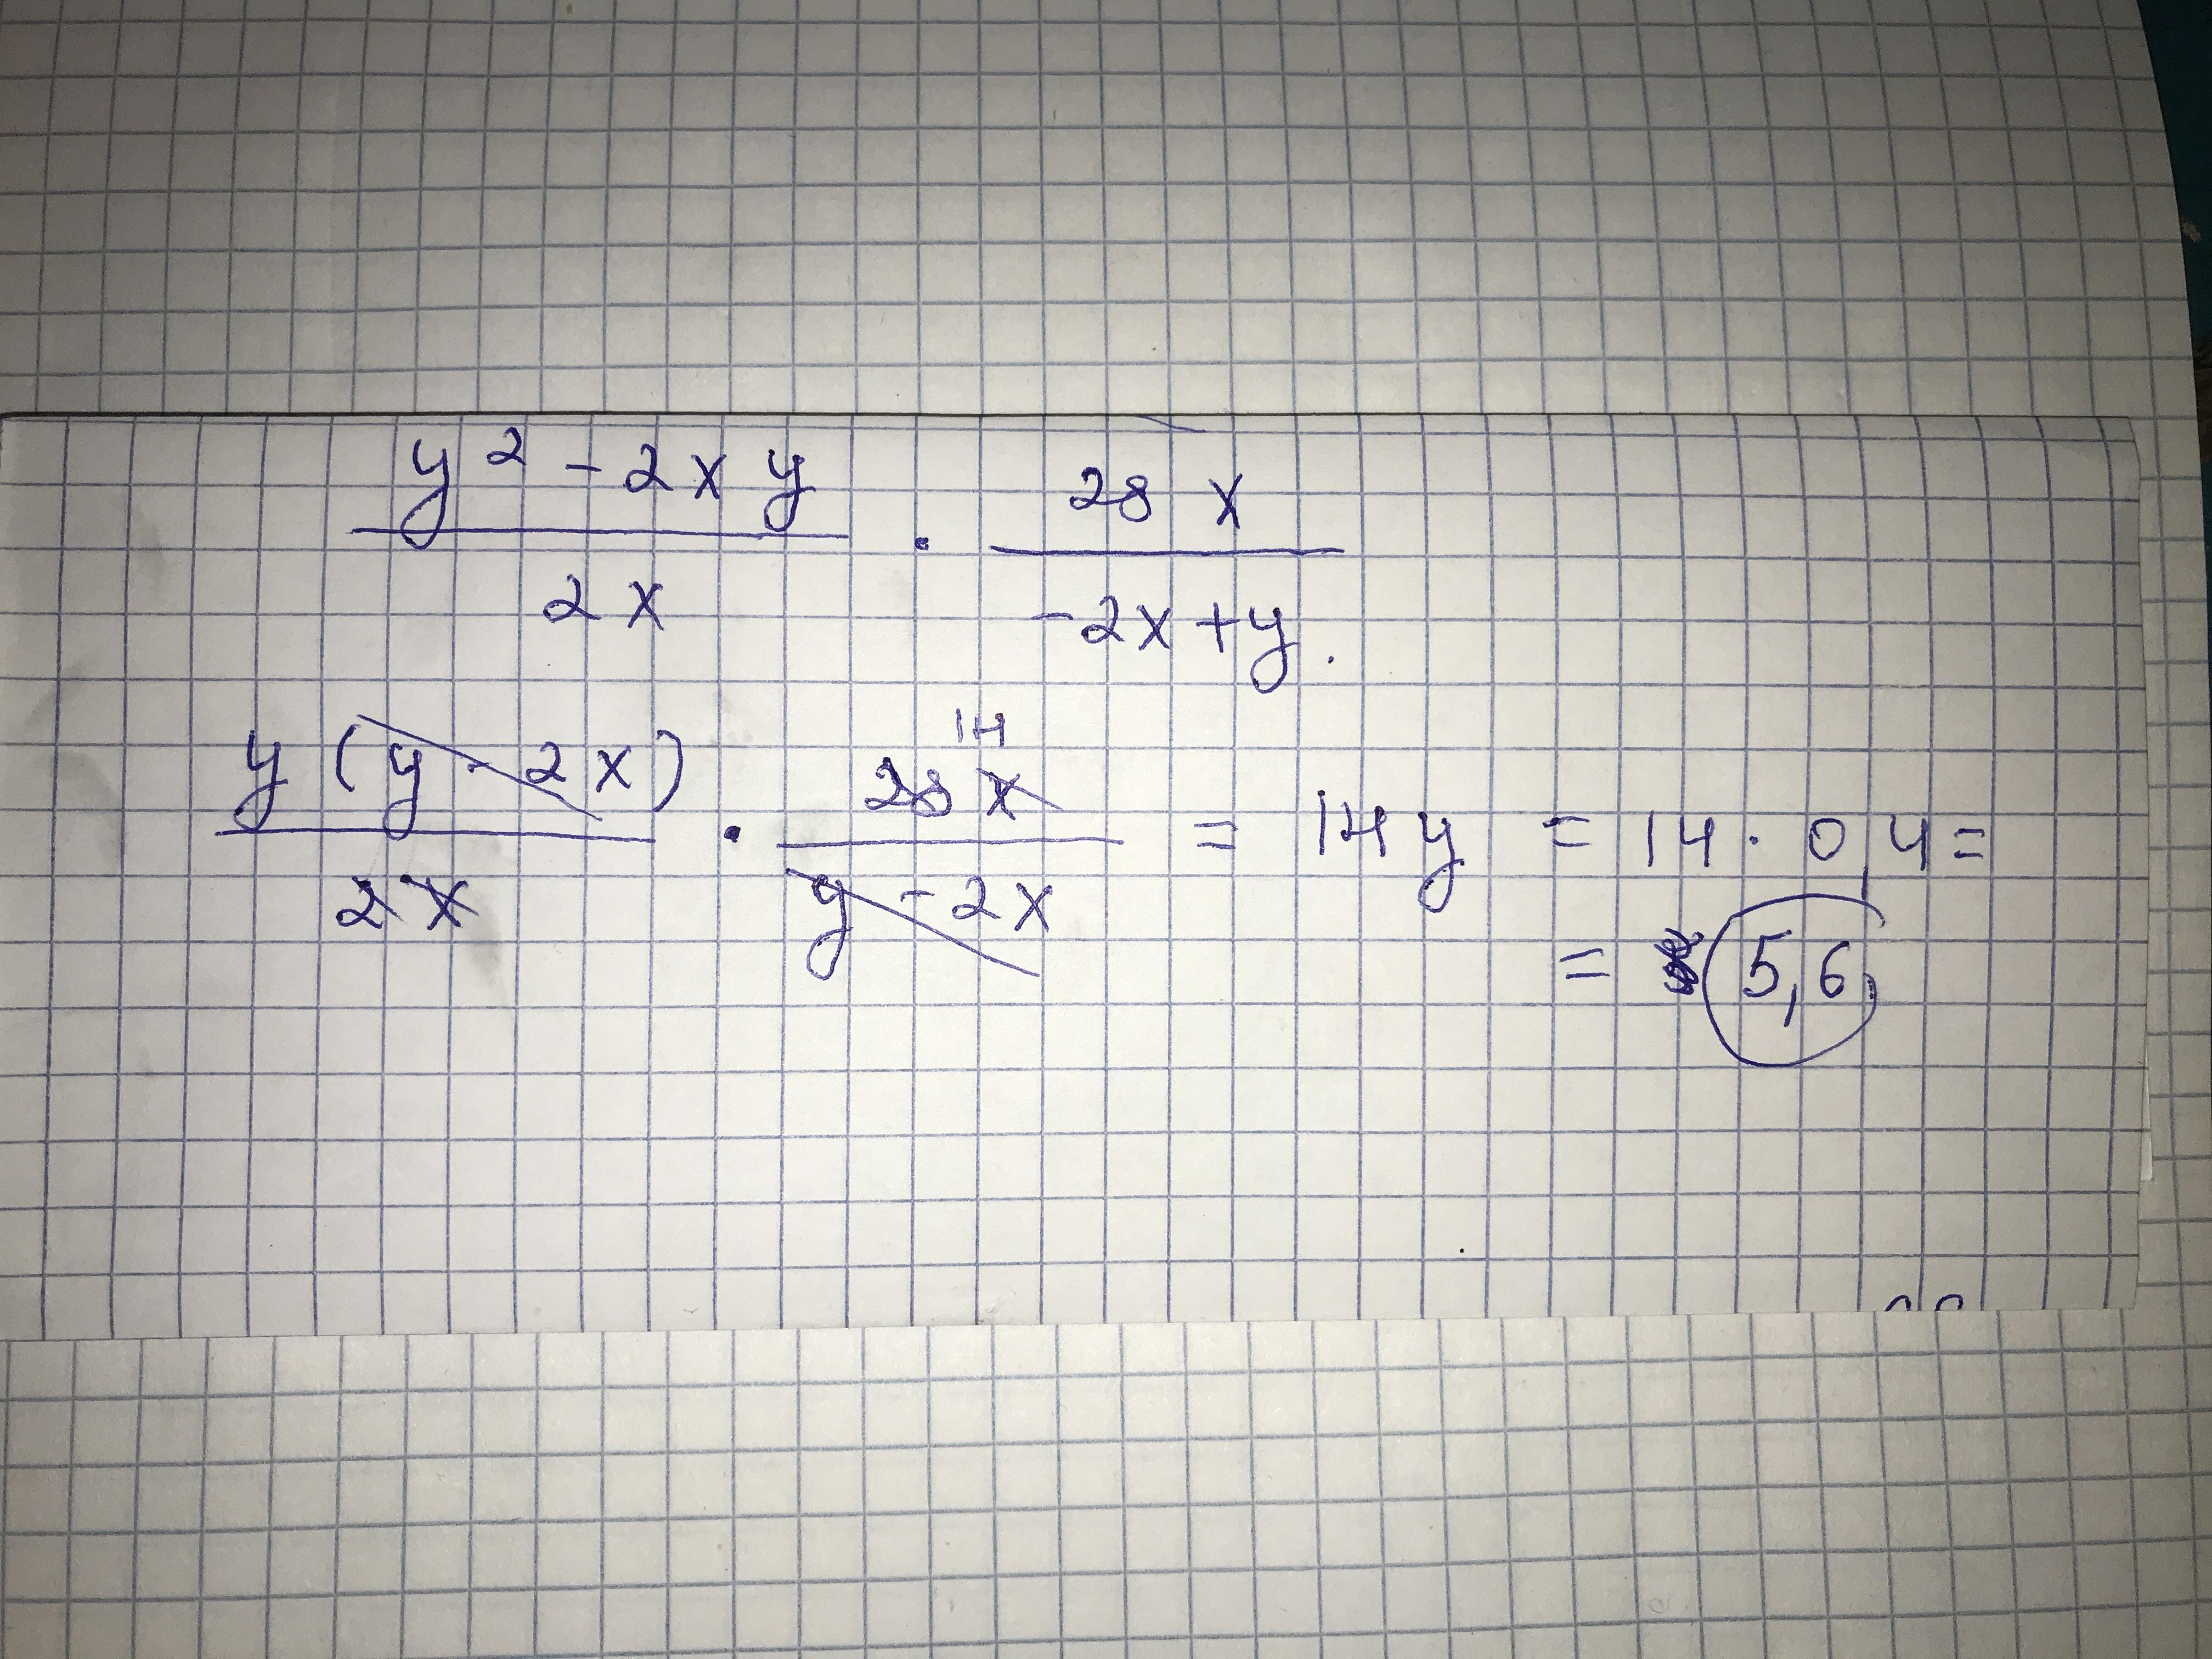 y² - 2xy / 2x · 28x / -2x + y.
y (y - 2x) / 2x · 28x / y - 2x = 14y = 14 · 0,4 =
14
= 5,6